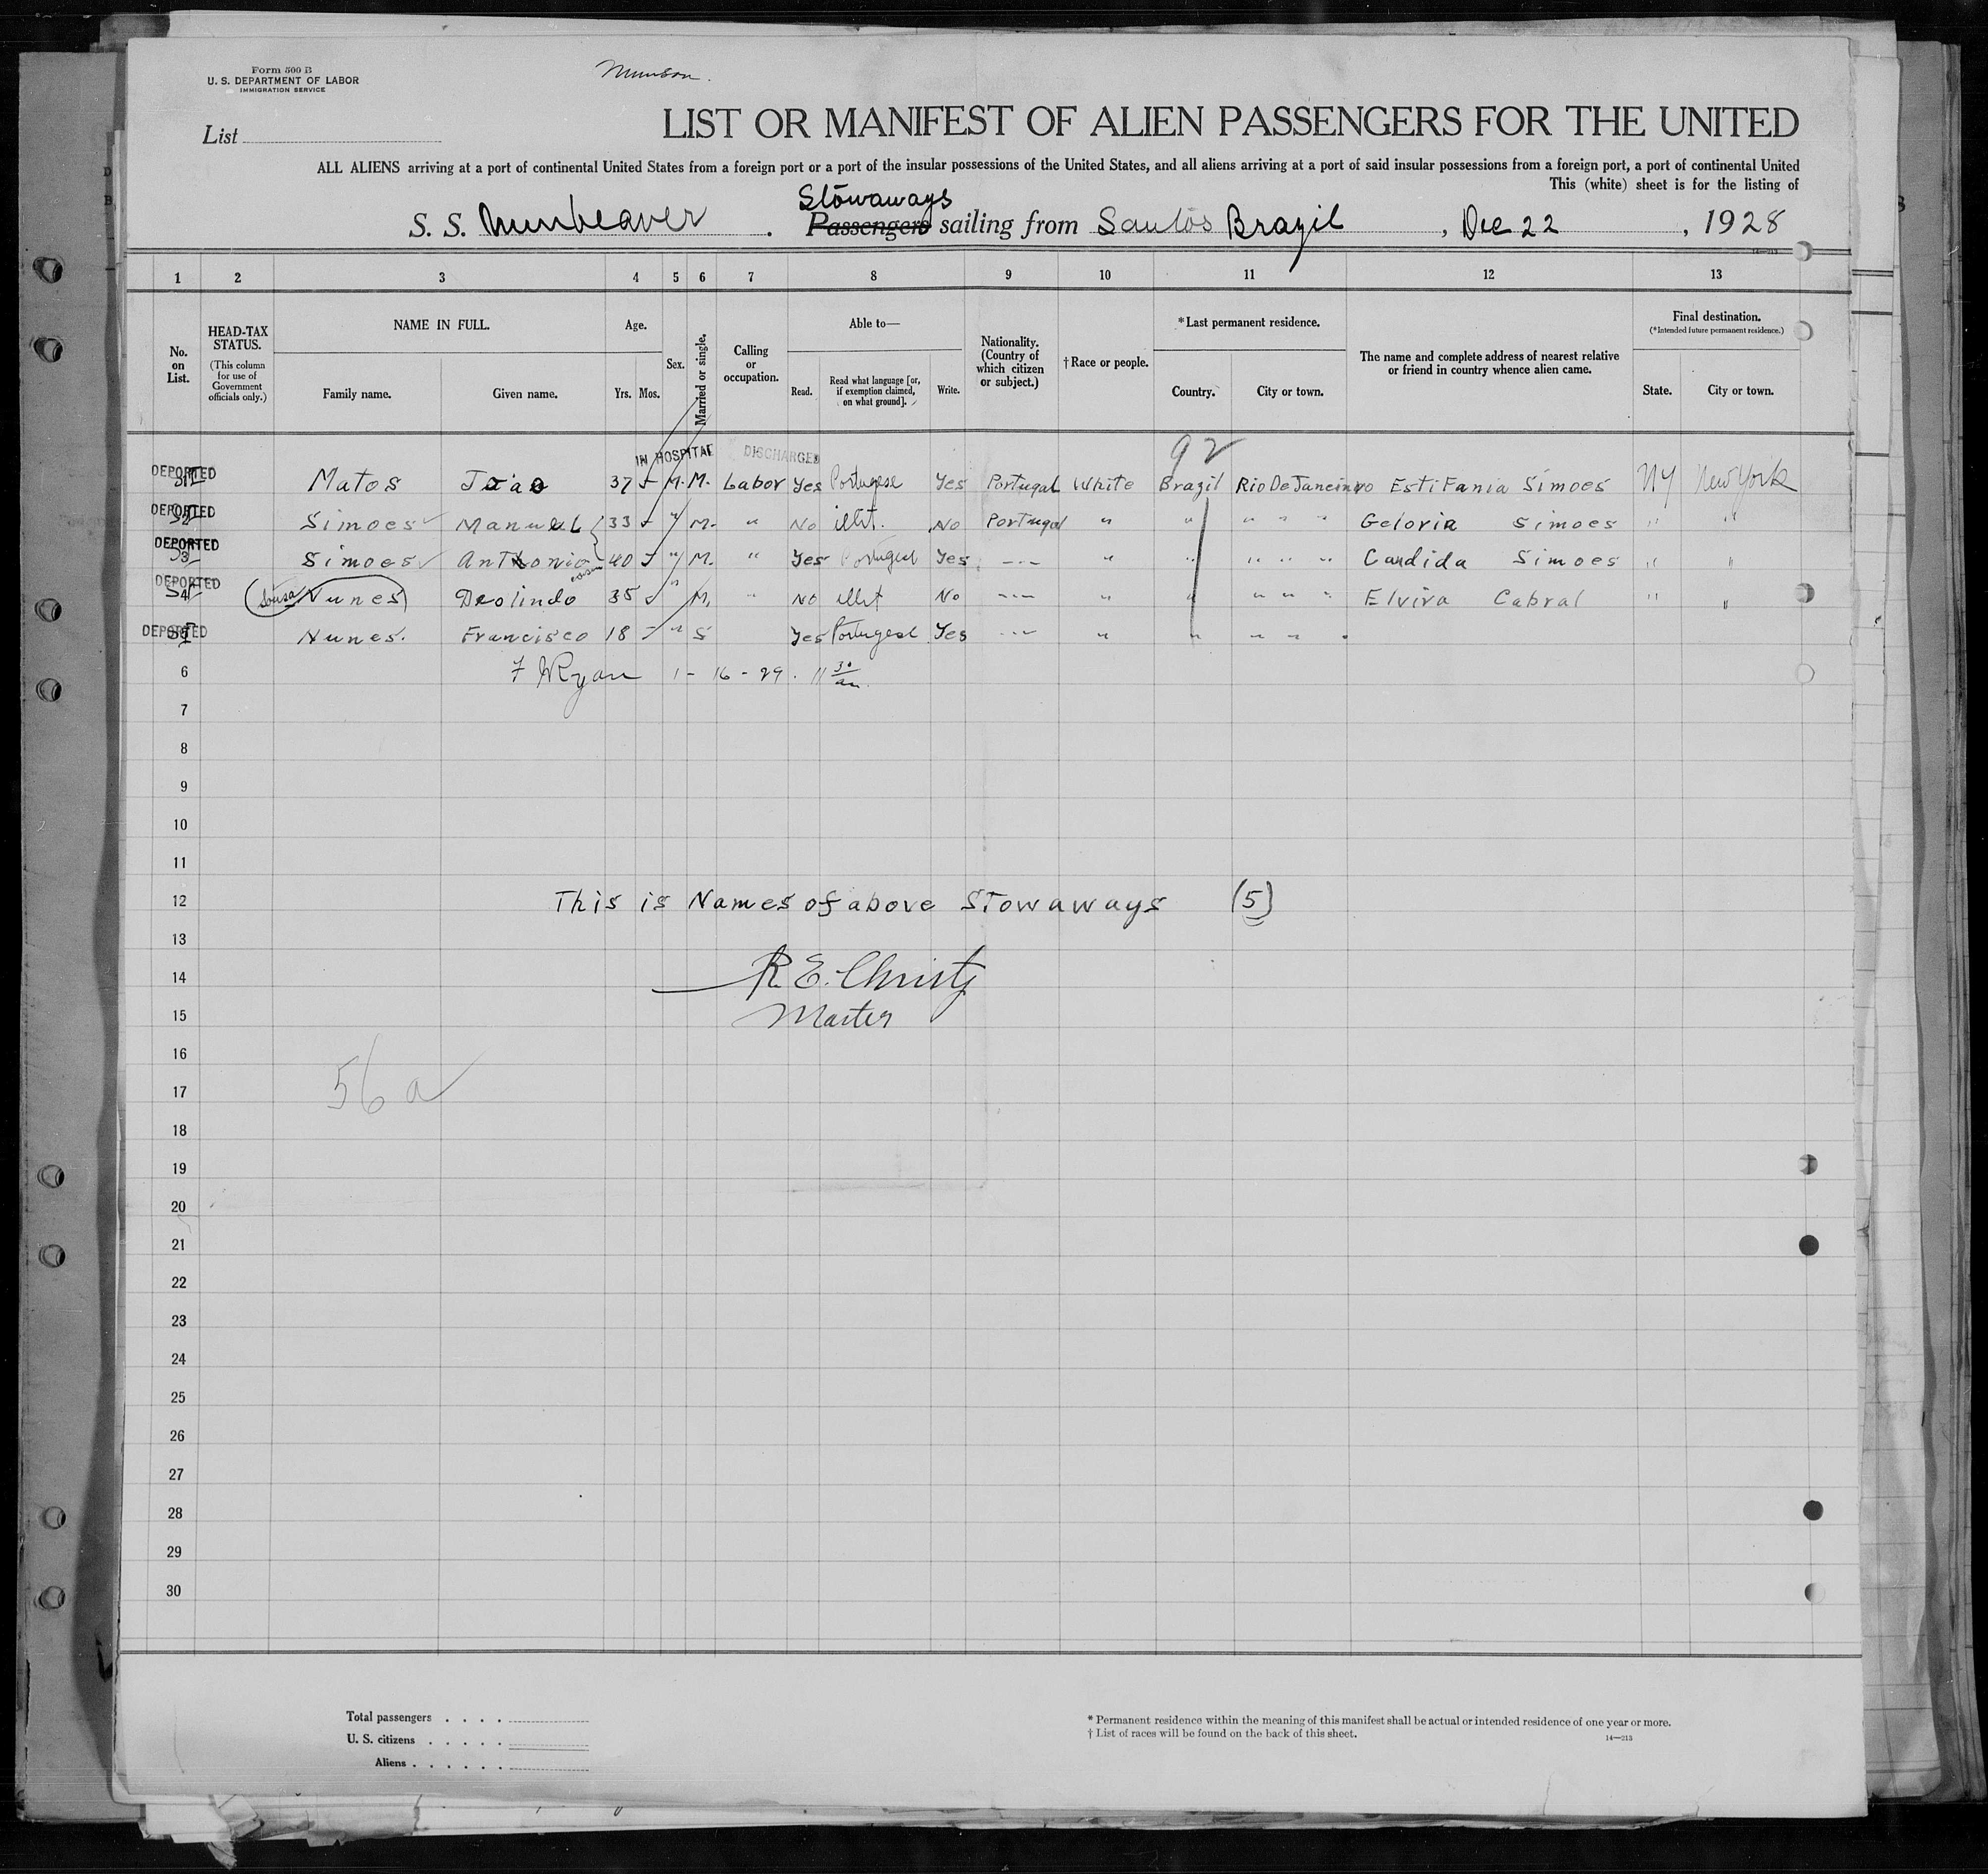 Form 500 B
U. S. DEPARTMENT OF LABOR
IMMIGRATION SERVICE
Munson.
List
LIST OR MANIFEST OF ALIEN PASSENGERS FOR THE UNITED
ALL ALIENS arriving at a port of continental United States from a foreign port or a port of the insular possessions of the United States, and all aliens arriving at a port of said insular possessions from a foreign port, a port of continental United
This (white) sheet is for the listing of
Stowaways
S. S. Munbeaver . Passengers sailing from Santos Brazil , Dec 22 , 1928
14—213
1 2 3 4 5 6 7 8 9 10 11 12 13
No. on List.
HEAD-TAX STATUS.
(This column for use of Government officials only.)
NAME IN FULL.
Family name. Given name.
Age.
Yrs. Mos.
Sex.
Married or single.
Calling or occupation.
Able to—
Read. Read what language [or, if exemption claimed, on what ground]. Write.
Nationality. (Country of which citizen or subject.)
† Race or people.
* Last permanent residence.
Country. City or town.
The name and complete address of nearest relative or friend in country whence alien came.
Final destination.
(* Intended future permanent residence.)
State. City or town.
IN HOSPITAL DISCHARGED 92
DEPORTED Matos Joao 37 M. M. Labor Yes Portugese Yes Portugal White Brazil Rio De Janeiro Estifania Simoes NY New York
DEPORTED Simoes Manuel 33 " M. " No illit. No Portugal " " " " " Geloria Simoes " "
DEPORTED Simoes Anthonio 40 " M. " Yes Portugese Yes --- " " " " " Candida Simoes " "
DEPORTED Sousa Nunes Deolindo 35 " M. " No illit No --- " " " " " Elvira Cabral " "
DEPORTED Nunes. Francisco 18 " S Yes Portugese Yes --- " " " "
6 F Ryan 1-16-29. 11 30 am.
7
8
9
10
11
12 This is Names of above Stowaways (5)
13
14 R. E. Christy
15 Master
16
17 56 a
18
19
20
21
22
23
24
25
26
27
28
29
30
Total passengers . . . .
U. S. citizens . . . . .
Aliens . . . . . .
* Permanent residence within the meaning of this manifest shall be actual or intended residence of one year or more.
† List of races will be found on the back of this sheet.
14—213